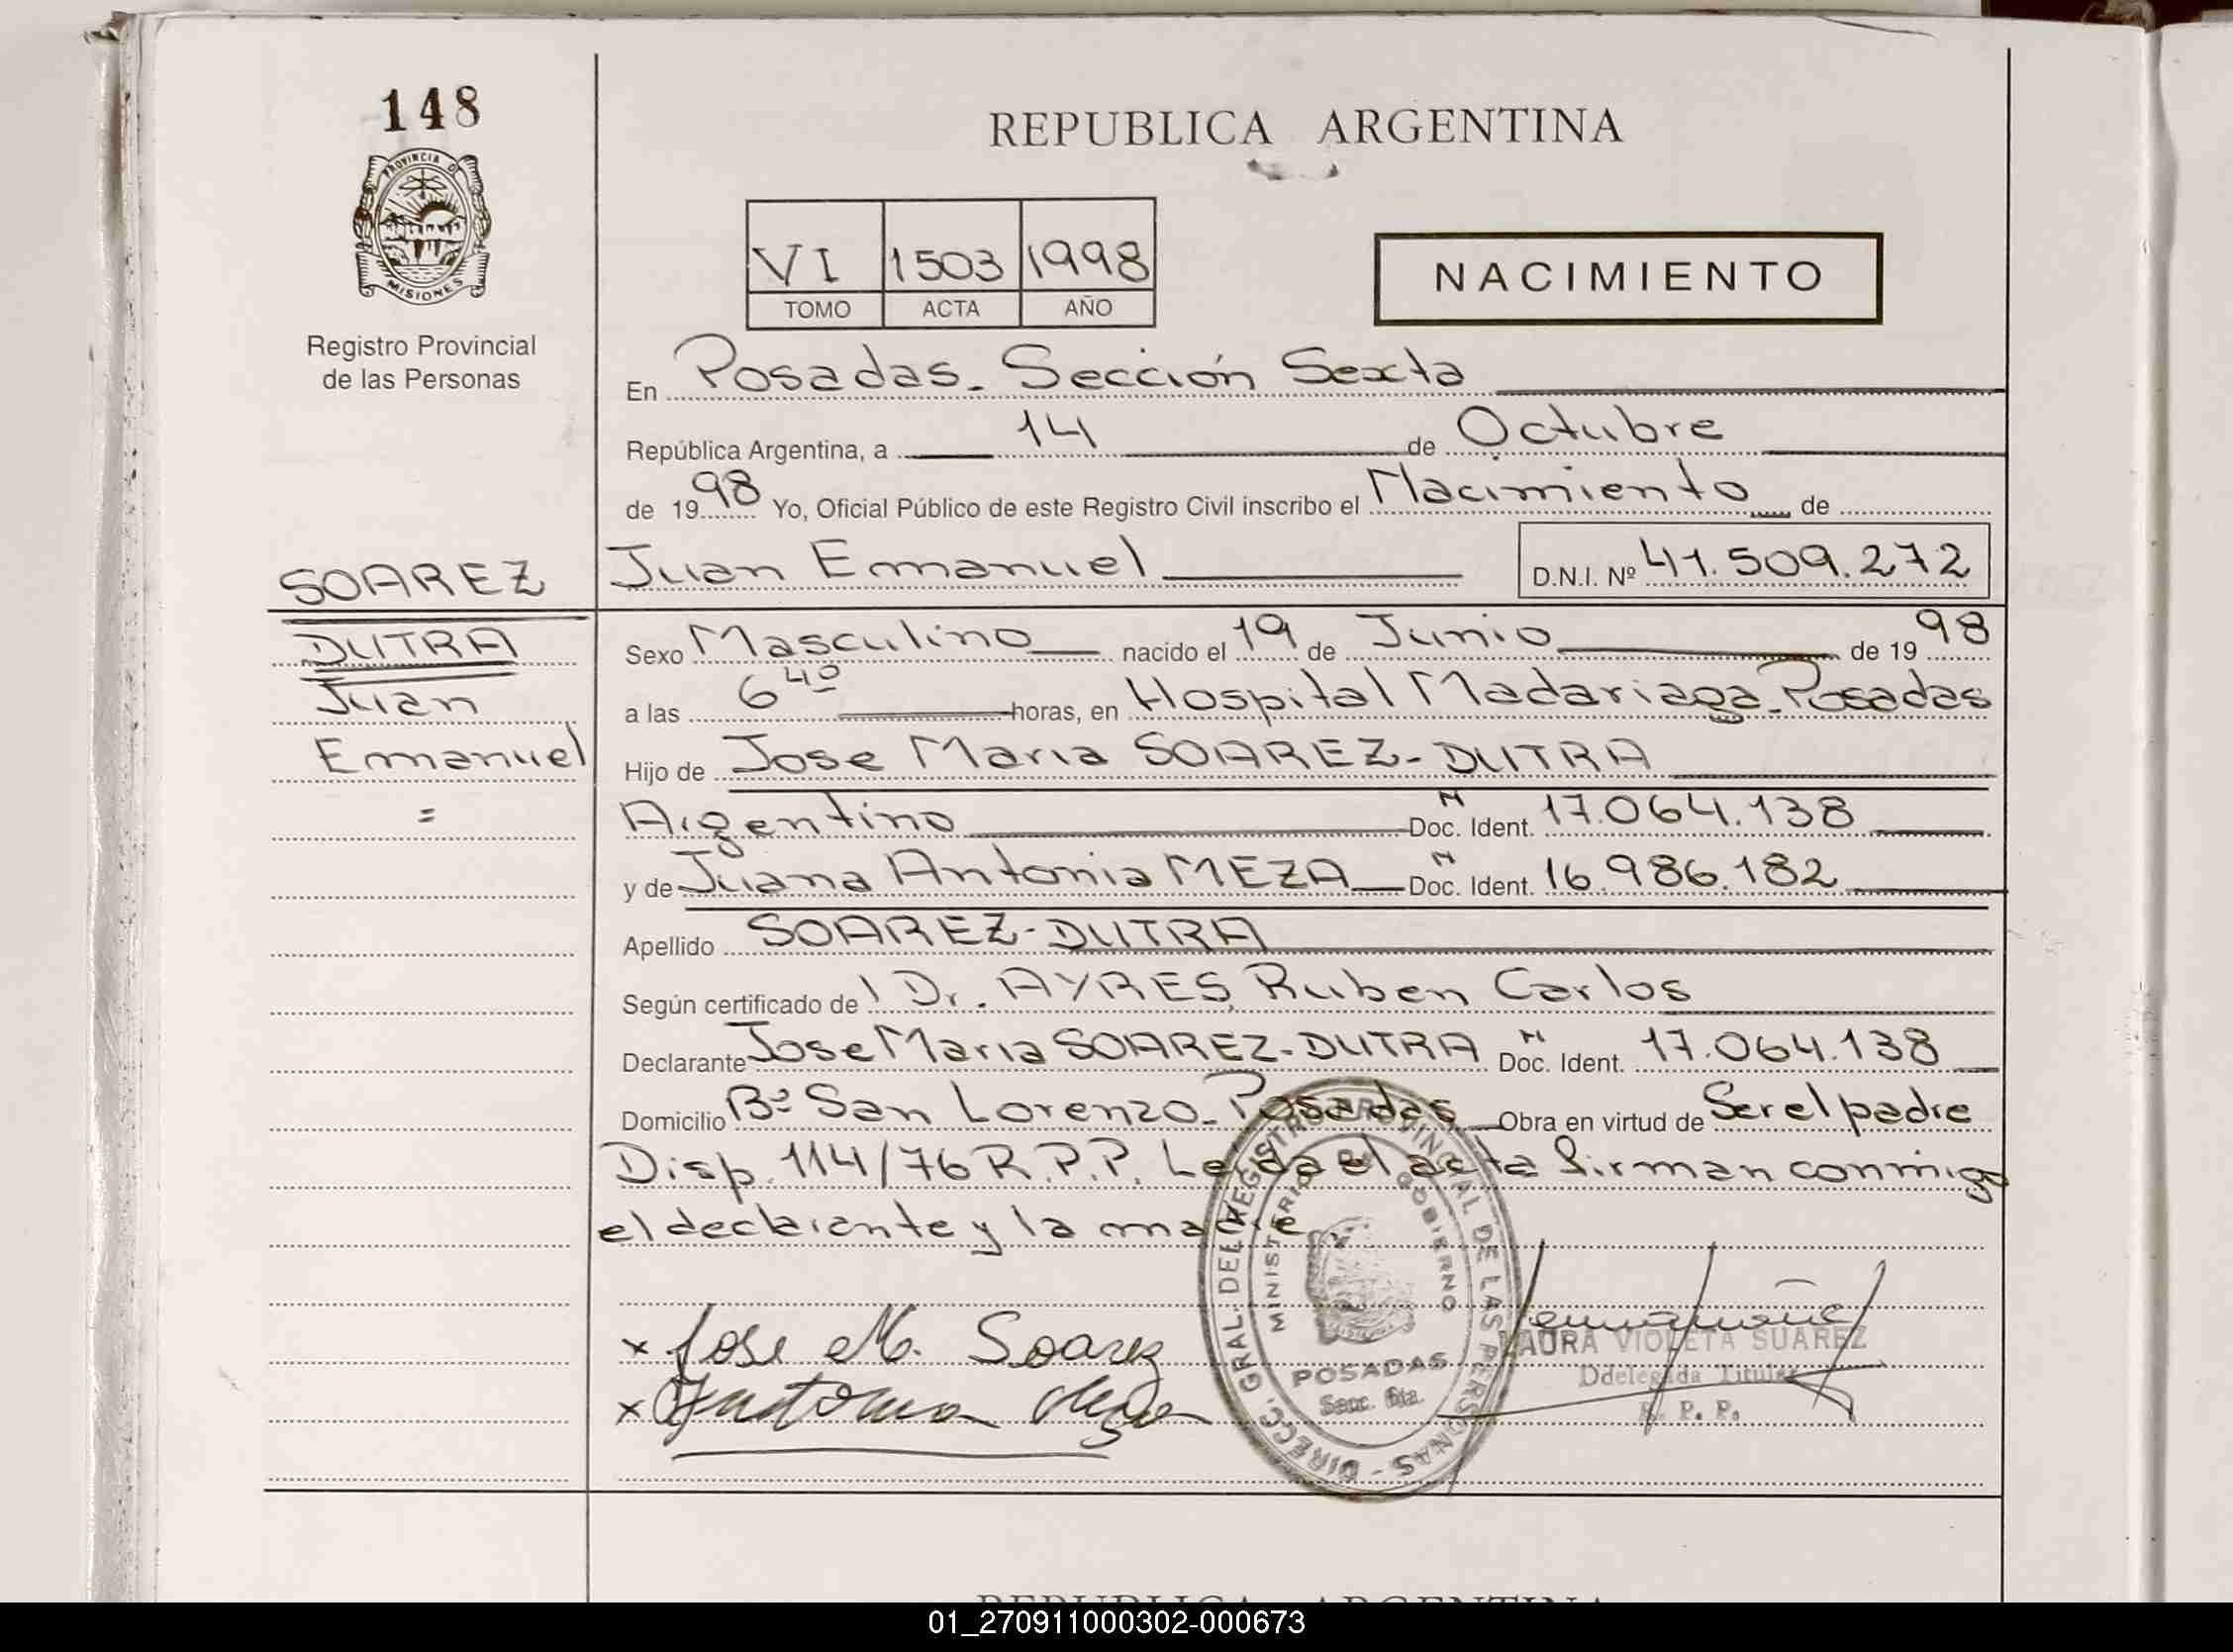 148
PROVINCIA D
MISIONES
Registro Provincial
de las Personas
SOAREZ
DUTRA
Juan
Emanuel
=
REPUBLICA ARGENTINA
VI 1503 1998
TOMO ACTA AÑO
NACIMIENTO
En Posadas. Sección Sexta
República Argentina, a 14 de Octubre
de 19 98 Yo, Oficial Público de este Registro Civil inscribo el Nacimiento de
Juan Emanuel D.N.I. Nº 41.509.272
Sexo Masculino nacido el 19 de Junio de 19 98
a las 6 40 horas, en Hospital Madariaga-Posadas
Hijo de Jose Maria SOAREZ-DUTRA
Argentino Doc. Ident. 17.064.138
y de Juana Antonia MEZA Doc. Ident. 16.986.182
Apellido SOAREZ-DUTRA
Según certificado de Dr. AYRES, Ruben Carlos
Declarante Jose Maria SOAREZ-DUTRA Doc. Ident. 17.064.138
Domicilio Bº San Lorenzo-Posadas Obra en virtud de Ser el padre
Disp. 114/76 R.P.P. Leída el acta firman conmigo
el declarante y la madre.
x Jose M. Soarez
x Antonia Meza
DIRECC. GRAL. DEL REGISTRO PROVINCIAL DE LAS PERSONAS -
MINISTERIO DE GOBIERNO
POSADAS
Secc. 6ta.
LAURA VIOLETA SUAREZ
Ddelegada Titular
R. P. P.
REPUBLICA ARGENTINA
01_270911000302-000673